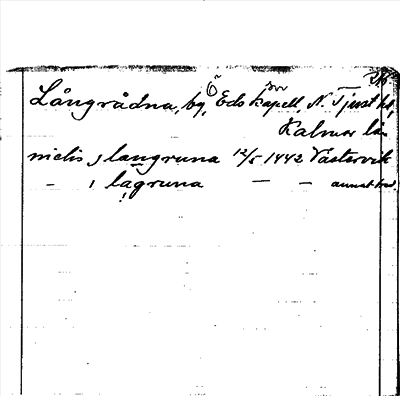 Långrådna, by, Ö Eds kapell, N. Tjust hd,
Kalmar län
nielis i langruna 12/5 1442 Västervik
– i lagruna – – annat ex.